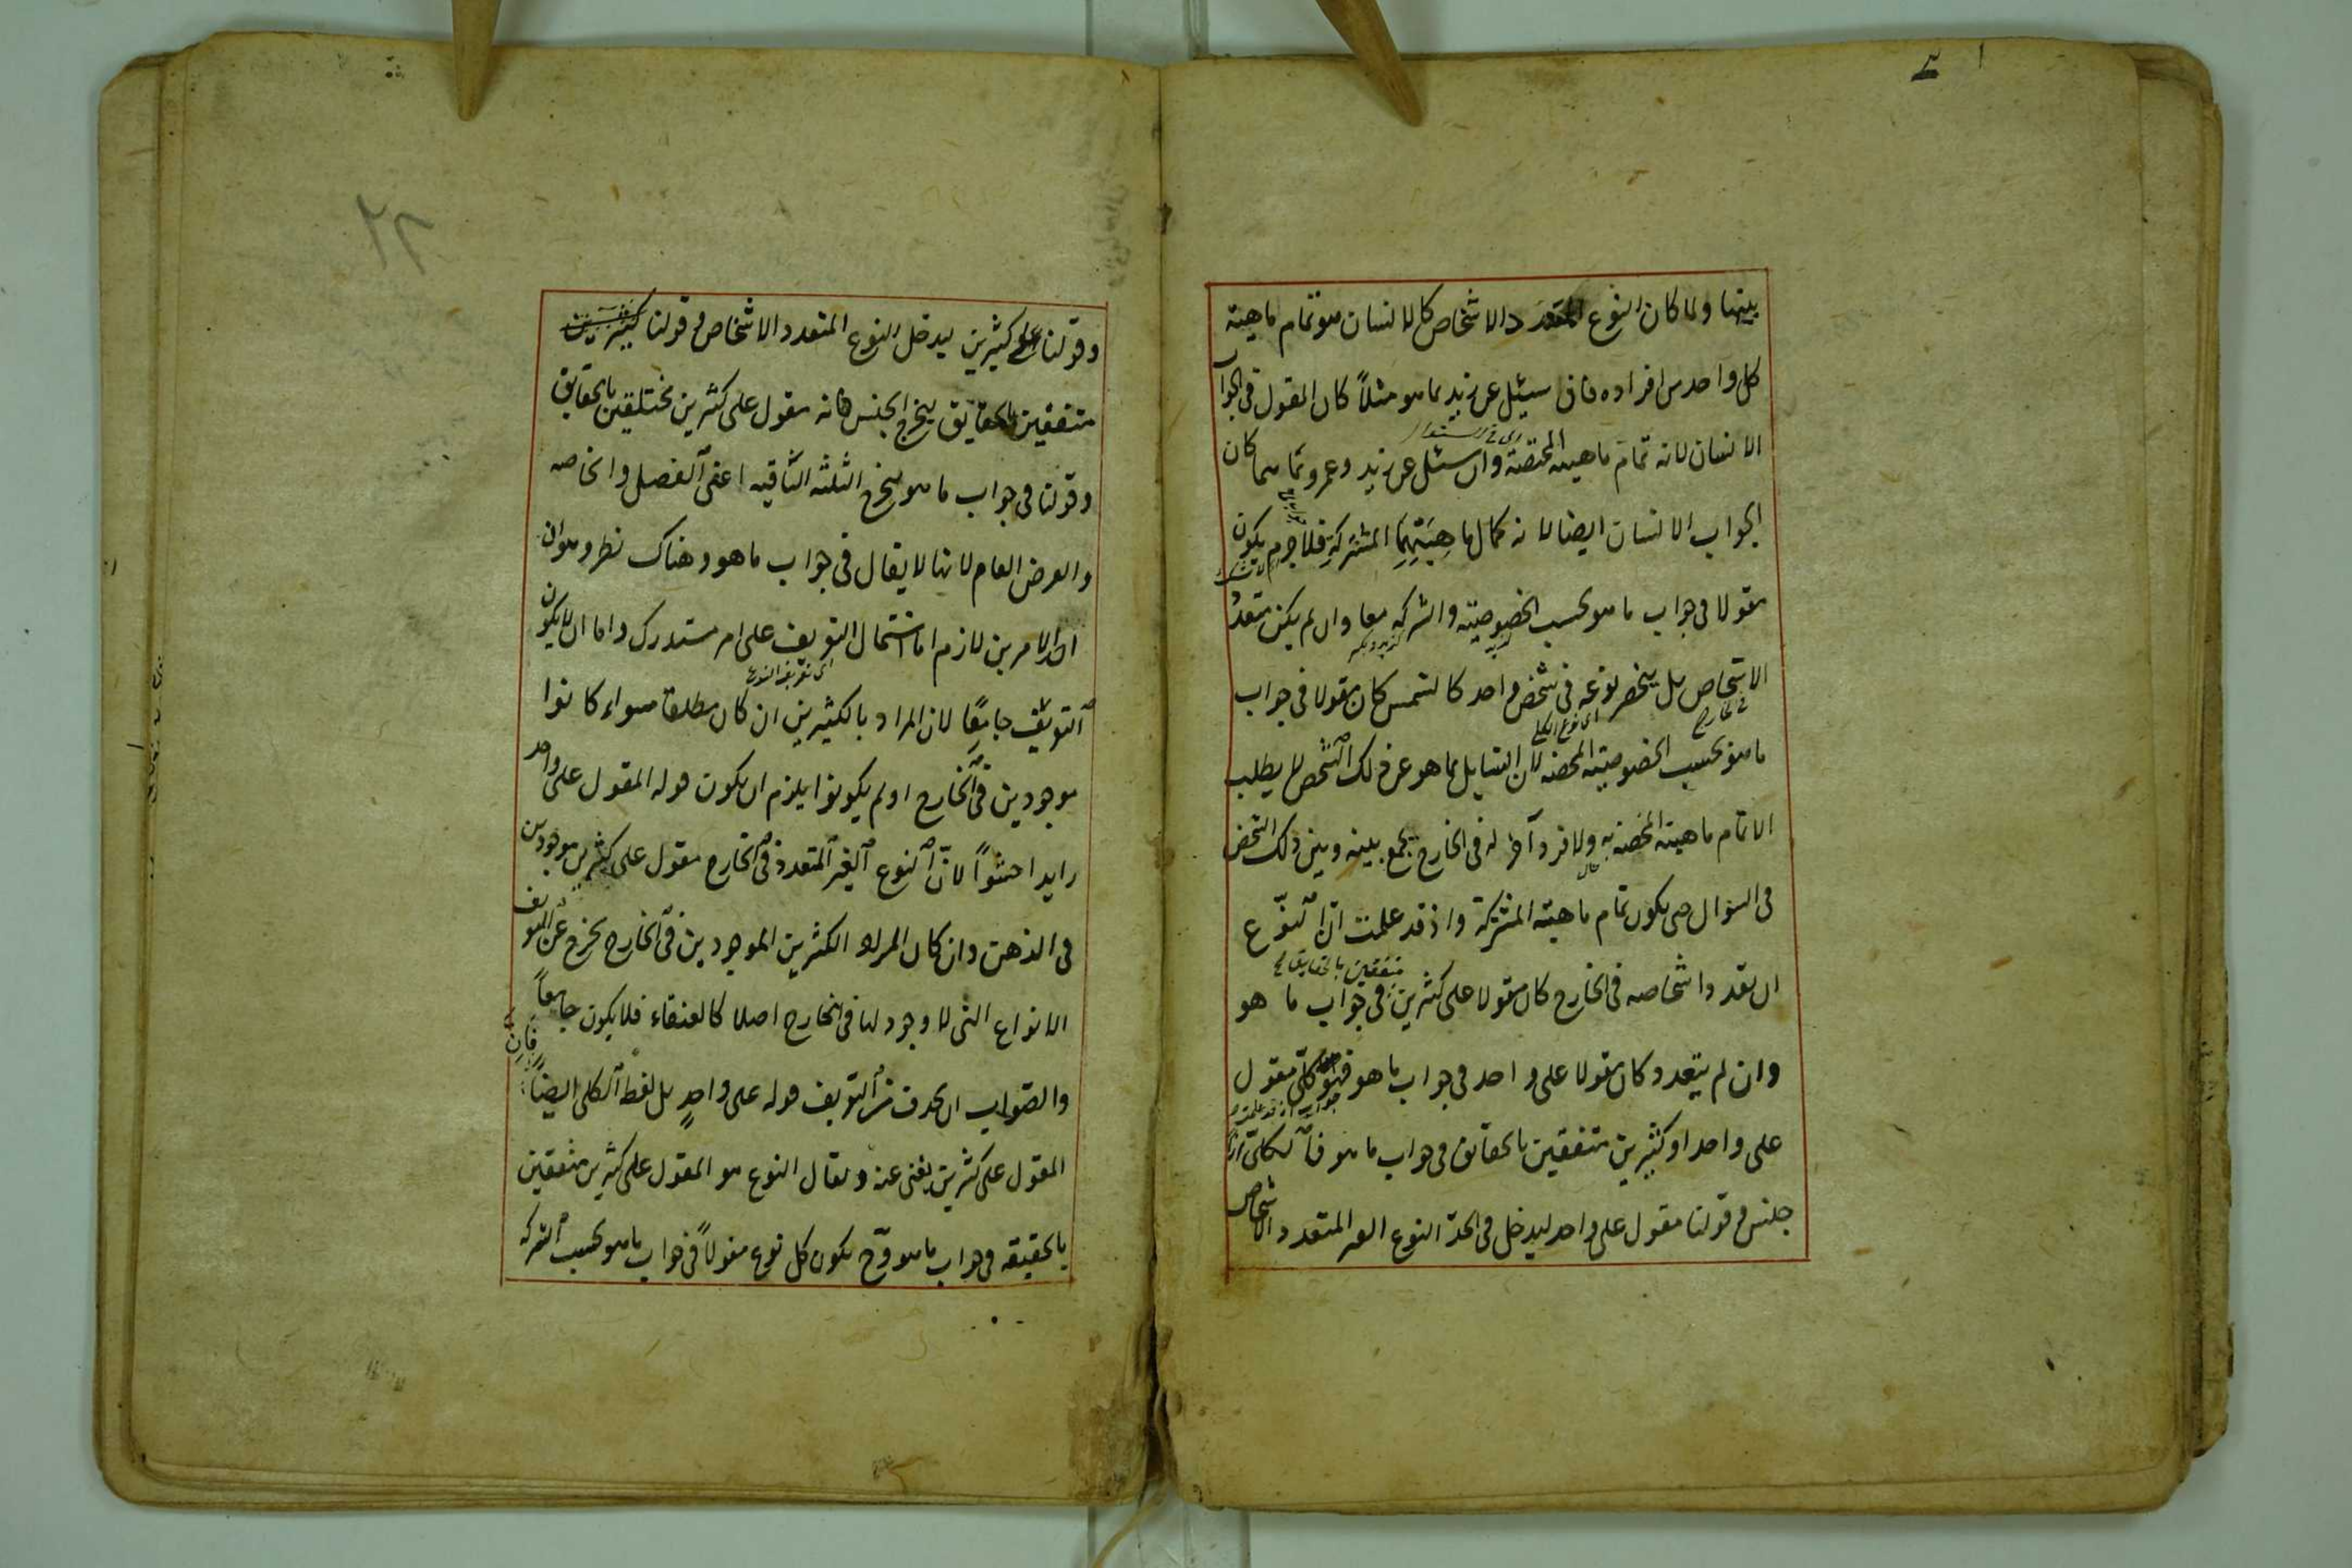 بينها ولما كان النوع المتعدد الاشخاص كالانسان هو تمام ماهية
كل واحد من افراده فان سيئل عن زيد بما هو مثلاً كان المقول فى الجواب
الانسان لانه تمام ماهيته المختصة وان سئل عن زيد وعمرو بما هما كان
الجواب الانسان ايضا لانه كمال ماهيتهما المشتركة فلاجرم يكون
مقولا فى جواب ما هو بحسب الخصوصية والشركه معا وان لم يكن متعدد
الاشخاص بل ينحصر نوعه فى شخص واحد كالشمس كان مقولا فى جواب
فى الخارج
اى نوع الكلى
ما هو بحسب الخصوصية المحضه لان السايل بما هو عن ذلك الشخص لا يطلب
الا تمام ماهيته المختصه به ولا فرد آخر له فى الخارج يجمع بينه وبين ذلك الشخص
فى السوال حتى يكون تمام ماهية المشتركة واذ قد علمت ان النوع
متفقين بالحقايق
ان تعدد اشخاصه فى الخارج كان مقولا على كثيرين فى جواب ما هو
وان لم يتعدد كان مقولا على واحد فى جواب ما هو فهو كلى مقول
على واحد او كثيرين متفقين بالحقائق فى جواب ما هو فالكلى
جنس وقولنا مقول على واحد ليدخل فى الحد النوع الغير المتعدد الاشخاص
وقولنا على كثيرين ليدخل النوع المتعدد الاشخاص وقولنا
متفقين بالحقايق ليخرج الجنس فانه مقول على كثيرين مختلفين بالحقايق
وقولنا فى جواب ما هو يخرج الثلثه الباقيه اعنى الفصل والخاصه
والعرض العام لانها لا يقال فى جواب ما هو وهناك نظر وهو ان
احد الامرين لازم اما اشتمال التعريف على امر مستدرك واما ان لا يكون
اى تعريف النوع
التعريف جامعًا لان المراد بالكثيرين ان كان مطلقا سواء كانوا
موجودين فى الخارج او لم يكونوا يلزم ان يكون قوله المقول على واحد
زايدا حشواً لانّ النوع الغير المتعدد فى الخارج مقول على كثيرين موجودين
فى الذهن وان كان المراد الكثيرين الموجودين فى الخارج يخرج عن التعريف
الانواع التى لا وجود لها فى الخارج اصلا كالعنقاء فلا يكون جامعاً
والصواب ان يحذف من التعريف قوله على واحدٍ بل لفظ الكلى ايضاً فان
المقول على كثيرين يغنى عنه ويقال النوع هو المقول على كثيرين متفقين
بالحقيقه فى جواب ما هو وح يكون كل نوع مقولاً فى جواب ما هو بحسب الشركه